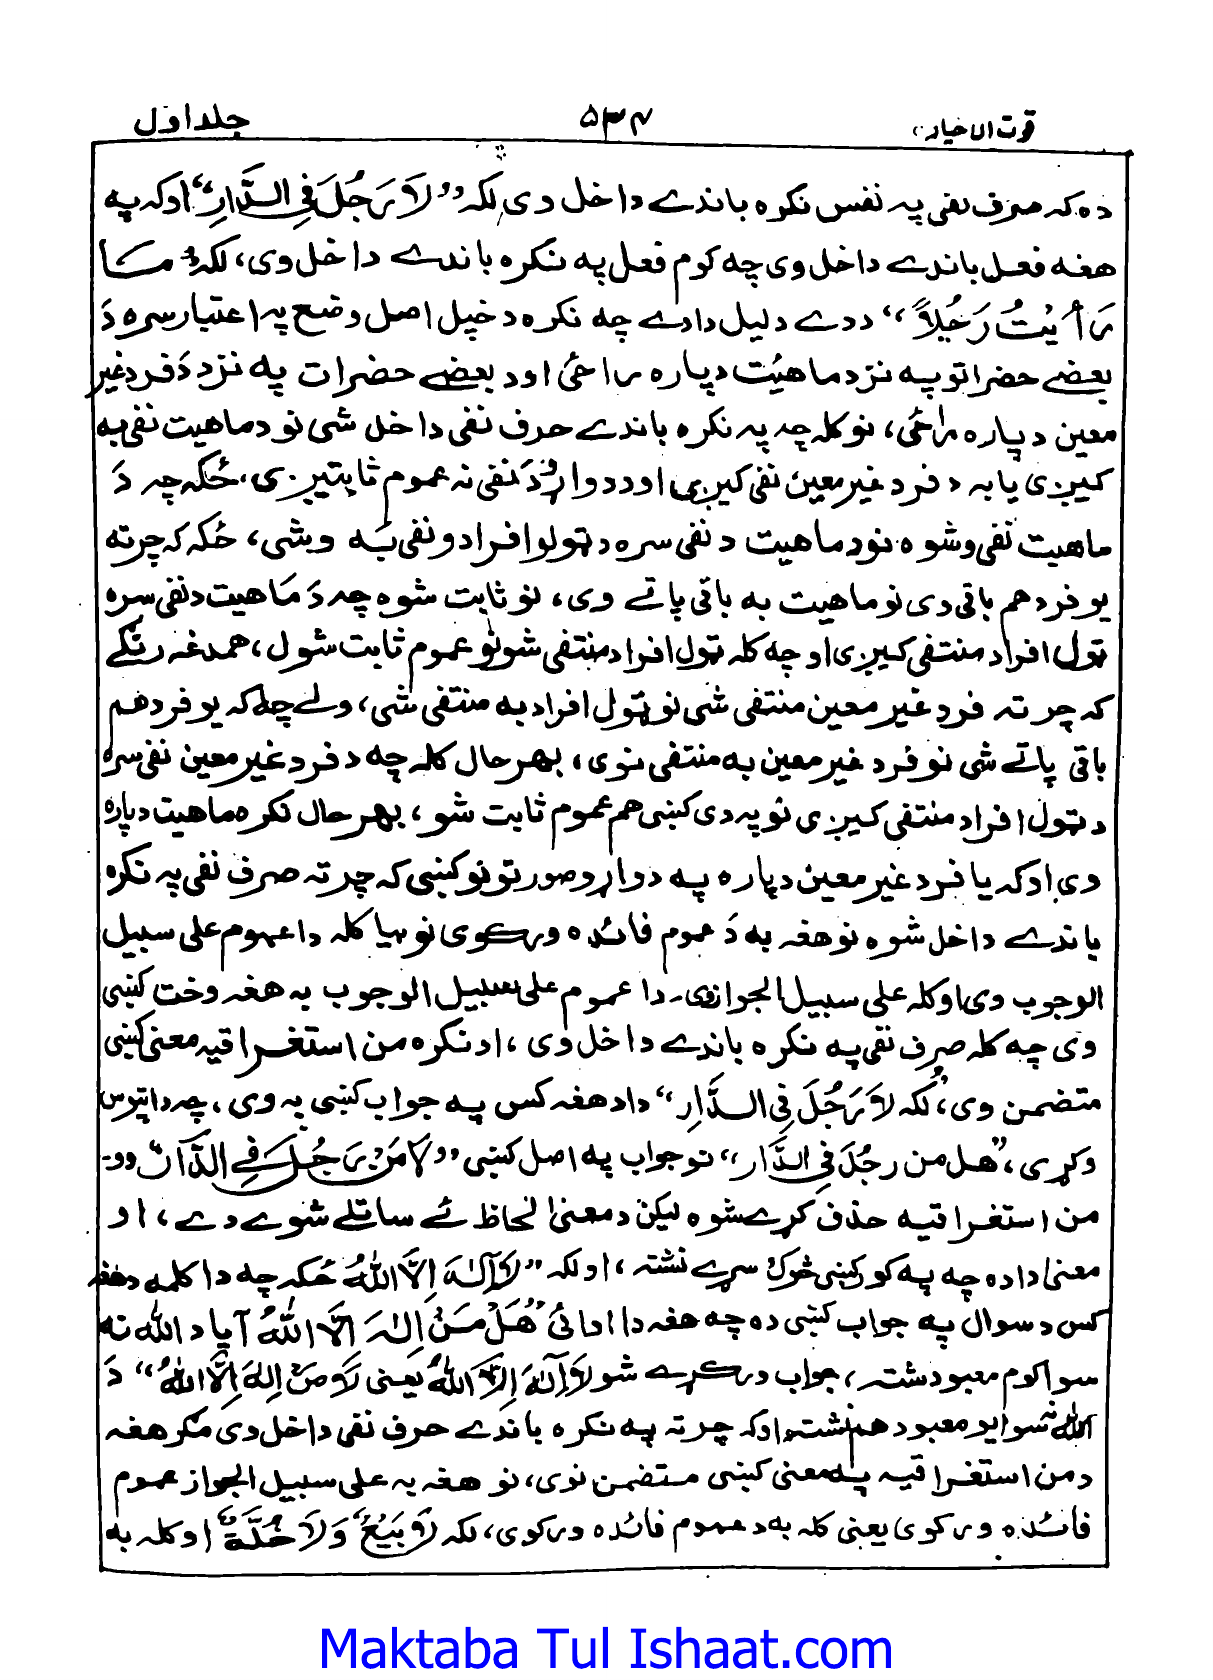 قوت الاخیار ۵۳۴ جلد اول
ده که حرف نفی په نفس نکره باندے داخل وی لکه ”لَا رَجُلَ فِی الدَّارِ“ اوکه په
هغه فعل باندے داخل وی چه کوم فعل په نکره باندے داخل وی، لکه ”مَا
رَأَیْتُ رَجُلًا“ ددے دلیل دادے چه نکره دخپل اصل وضع په اعتبار سره دَ
بعضے حضراتو په نزد ماهیّت دپاره راځی اود بعضے حضرات په نزد دَ فرد غیر
معین دپاره راځی، نو کله چه په نکره باندے حرف نفی داخل شی نو د ماهیت نفی به
کیږی یا به د فرد غیر معین نفی کیږی اود دواړو دَ نفی نه عموم ثابتیږی، ځکه چه دَ
ماهیت نفی وشوه نو د ماهیت د نفی سره د ټولو افرادو نفی به وشی، ځکه که چرته
یو فرد هم باقی وی نو ماهیت به باقی پاتے وی، نو ثابت شوه چه دَ ماهیت د نفی سره
ټول افراد منتفی کیږی او چه کله ټول افراد منتفی شو نو عموم ثابت شو، همدغه رنگے
که چرته فرد غیر معین منتفی شی نو ټول افراد به منتفی شی، ولے چه که یو فرد هم
باقی پاتے شی نو فرد غیر معین به منتفی نه وی، بهرحال کله چه د فرد غیر معین نفی سره
د ټول افراد منتفی کیږی نو په دی کښی هم عموم ثابت شو، بهرحال نکره ماهیت دپاره
وی اوکه یا فرد غیر معین دپاره په دواړو صورتونو کښی که چرته حرف نفی په نکره
باندے داخل شوه نو هغه به دَ عموم فائده ورکوی نو بیا کله دا عموم علی سبیل
الوجوب وی اوکله علی سبیل الجواز وی۔ دا عموم علی سبیل الوجوب په هغه وخت کښی
وی چه کله حرف نفی په نکره باندے داخل وی، اد نکره من استغراقیه معنی کښی
متضمن وی، لکه ”لَا رَجُلَ فِی الدَّارِ“ دا د هغه کس په جواب کښی به وی، چه دا تپوس
وکړی، ”هل من رجُلَ فی الدَّار“ نو جواب په اصل کښی ”لَا مَنْ رَجُلَ فِے الدَّارِ“ وو۔
من استغراقیه حذف کړے شوه لیکن د معنیٰ لحاظ ئے ساتلے شوے دے، او
معنیٰ داده چه په کور کښی څوک سړے نشته، او لکه ”لَا اِلٰهَ اِلَّا اللهُ“ ځکه چه دا کلمه د هغه
کس د سوال په جواب کښی ده چه هغه دا وائی ”هَلْ مَنْ اِلٰهَ اِلَّا اللهُ“ آیا د الله نه
سوا کوم معبود شته، جواب ورکړے شو لَا اِلٰهَ اِلَّا اللهُ یعنی لَا مَنْ اِلٰهَ اِلَّا اللهُ“ دَ
الله نه سوا یو معبود هم نشته، اوکه چرته په نکره باندے حرف نفی داخل وی مگر هغه
د من استغراقیه په معنی کښی متضمن نه وی، نو هغه به علی سبیل الجواز عموم
فائده ورکوی یعنی کله به د عموم فائده ورکوی، لکه لَا بَیْعٌ وَلَا خُلَّةٌ اوکله به
Maktaba Tul Ishaat.com